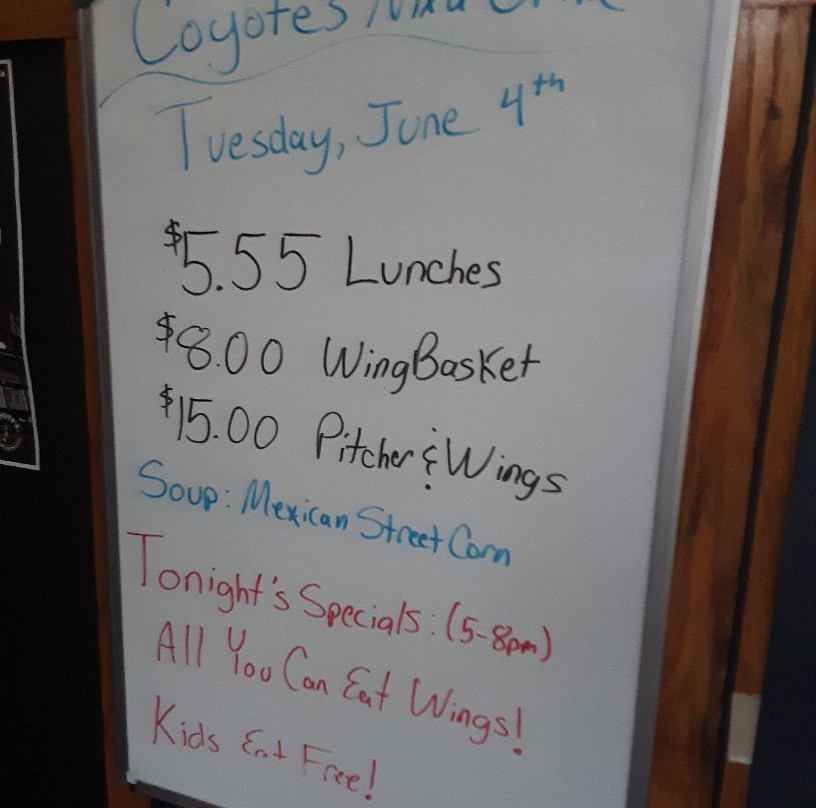 Coyotes
Tuesday, June 4th
$5.55 Lunches
$8.00 Wing Basket
$15.00 Pitcher & Wings
Soup: Mexican Street Corn
Tonight's Specials: (5-8pm)
All You Can Eat Wings!
Kids Eat Free!